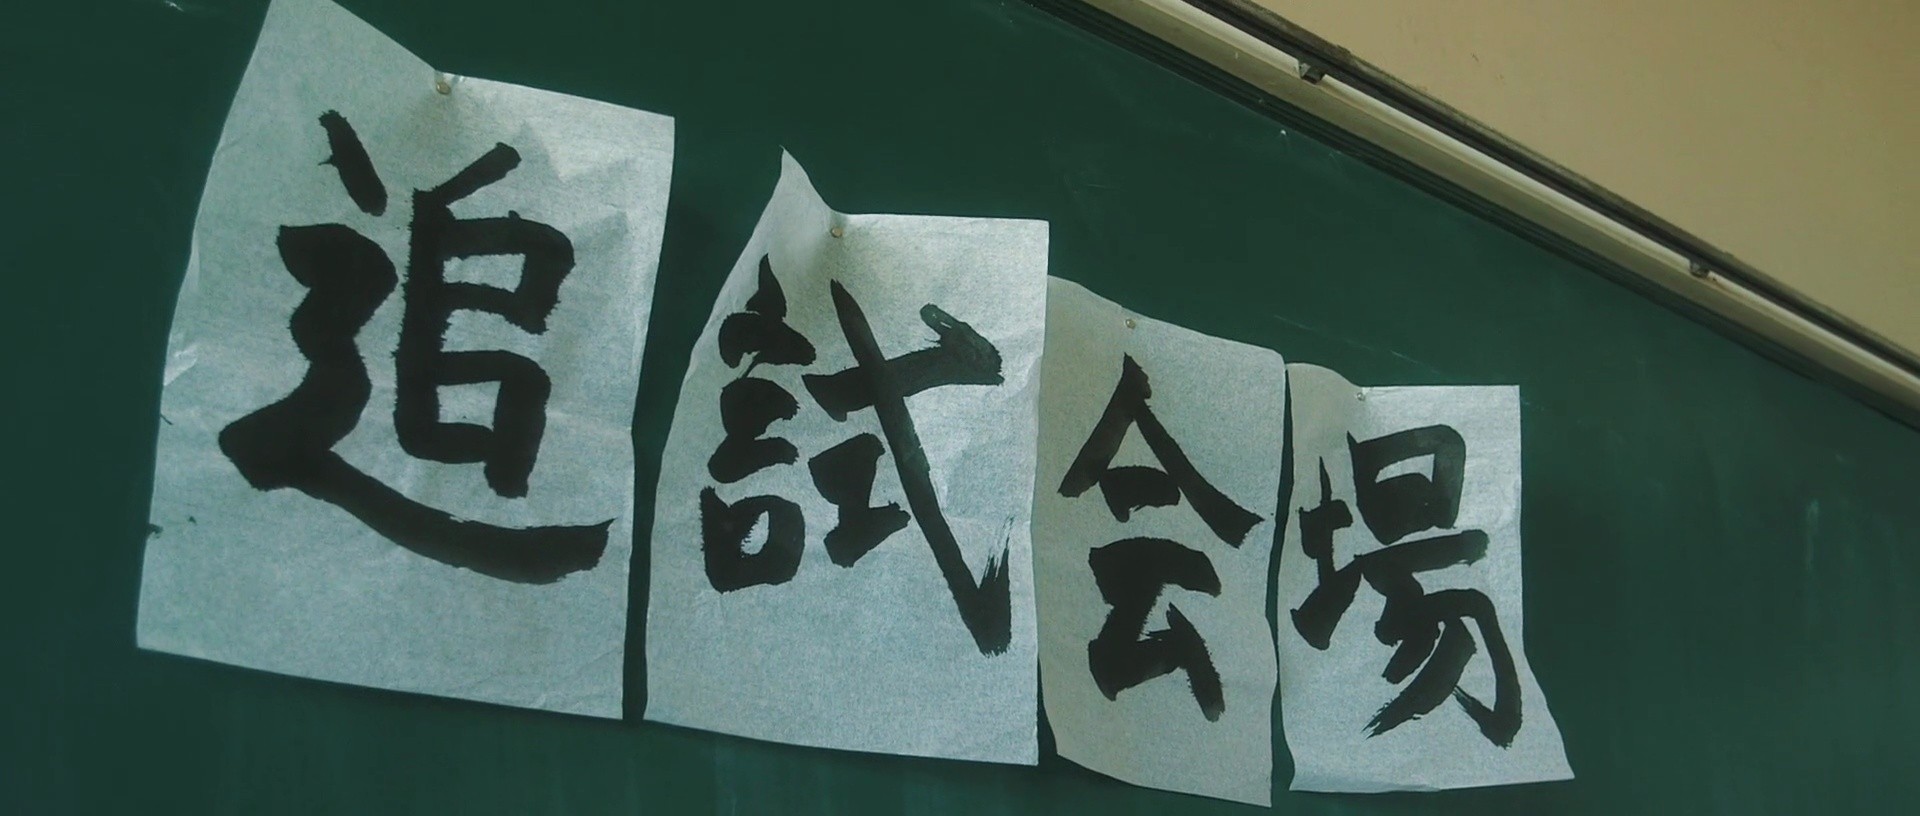 追試会場